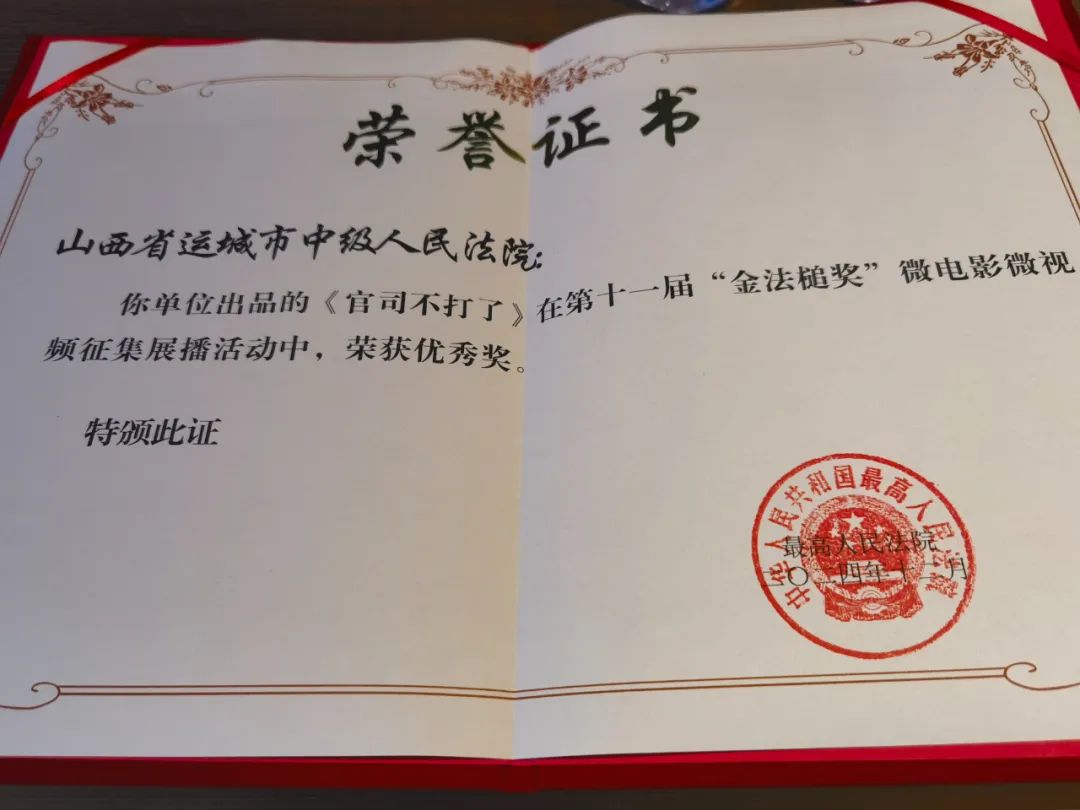 荣誉证书
山西省运城市中级人民法院:
你单位出品的《官司不打了》在第十一届“金法槌奖”微电影微视
频征集展播活动中，荣获优秀奖。
特颁此证
中华人民共和国最高人民法院
最高人民法院
二〇二四年十一月